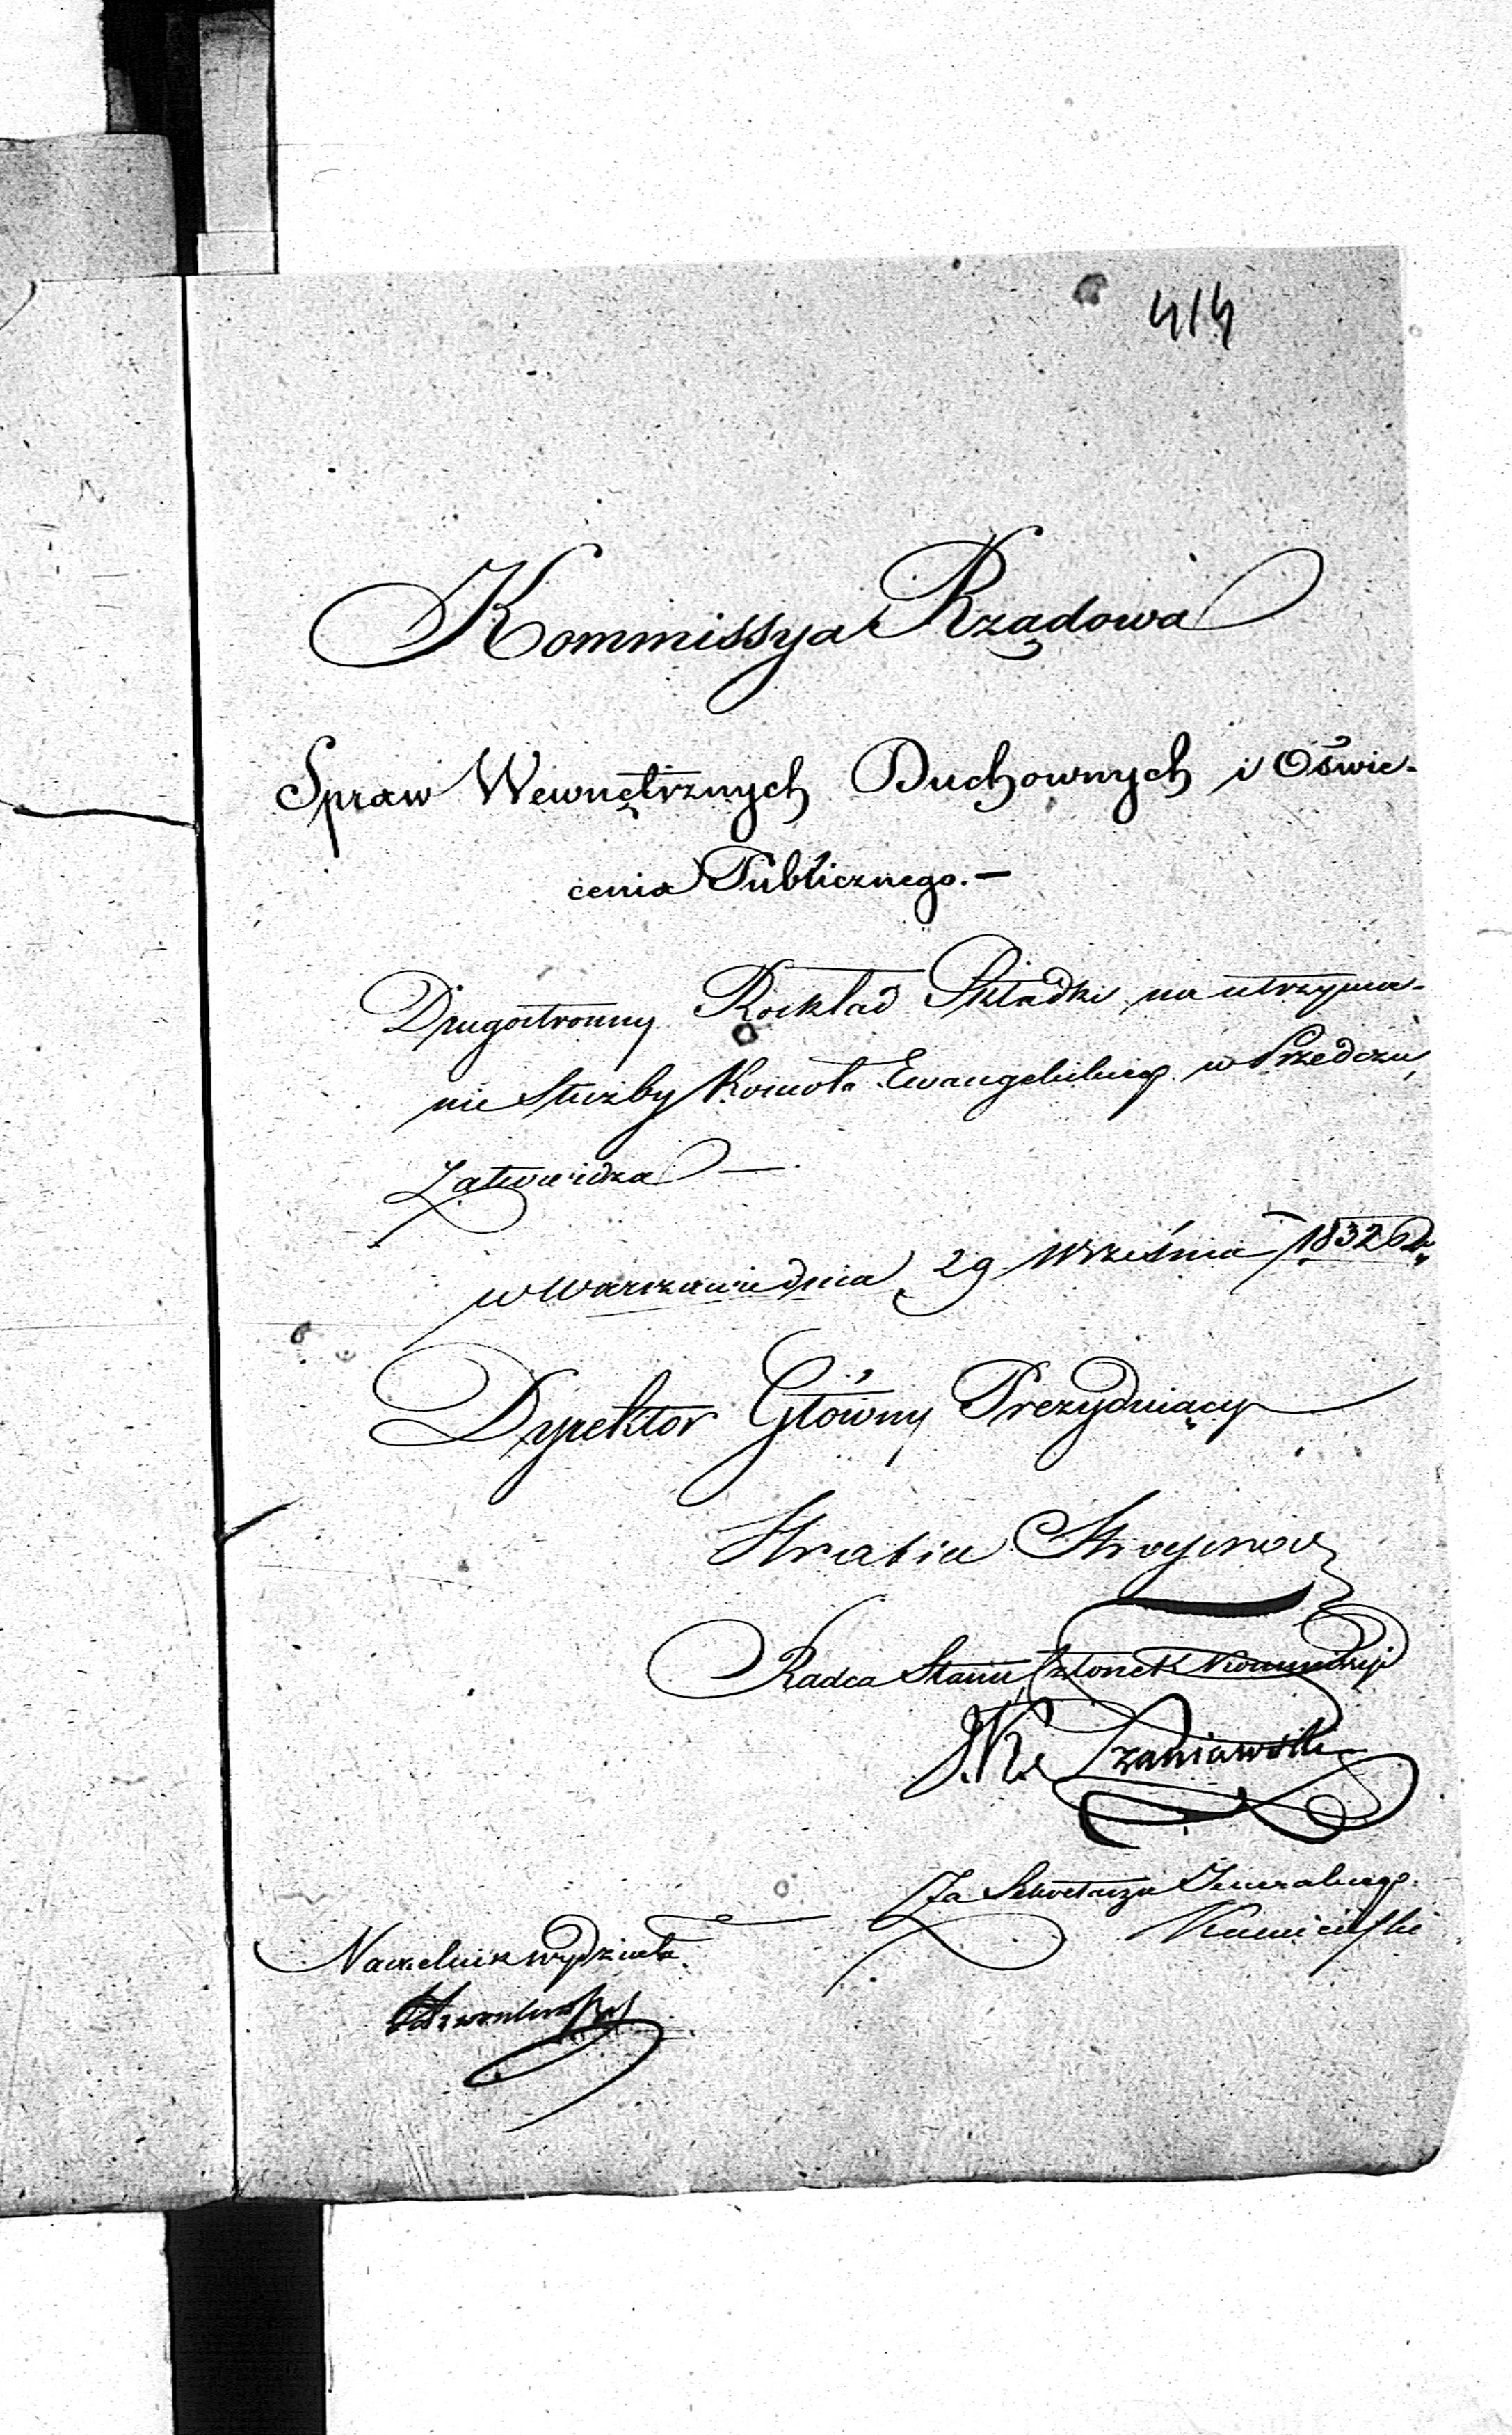 414
Kommissya Rządowa
Spraw Wewnętrznych Duchownych i Oświe-
cenia Publicznego. —
Drugostronny Rozkład Składki na utrzyma-
nie Służby Kościoła Ewangelickiego w Przedczu,
Zatwierdza —
w Warszawie dnia 29 Września 1832 R.
Dyrektor Główny Prezyduiący
Hrabia Stroynow
Radca Stanu Członek Kommissyi
J. K. Szaniawski
Za Sekretarza Jeneralnego
Naczelnik wydziału